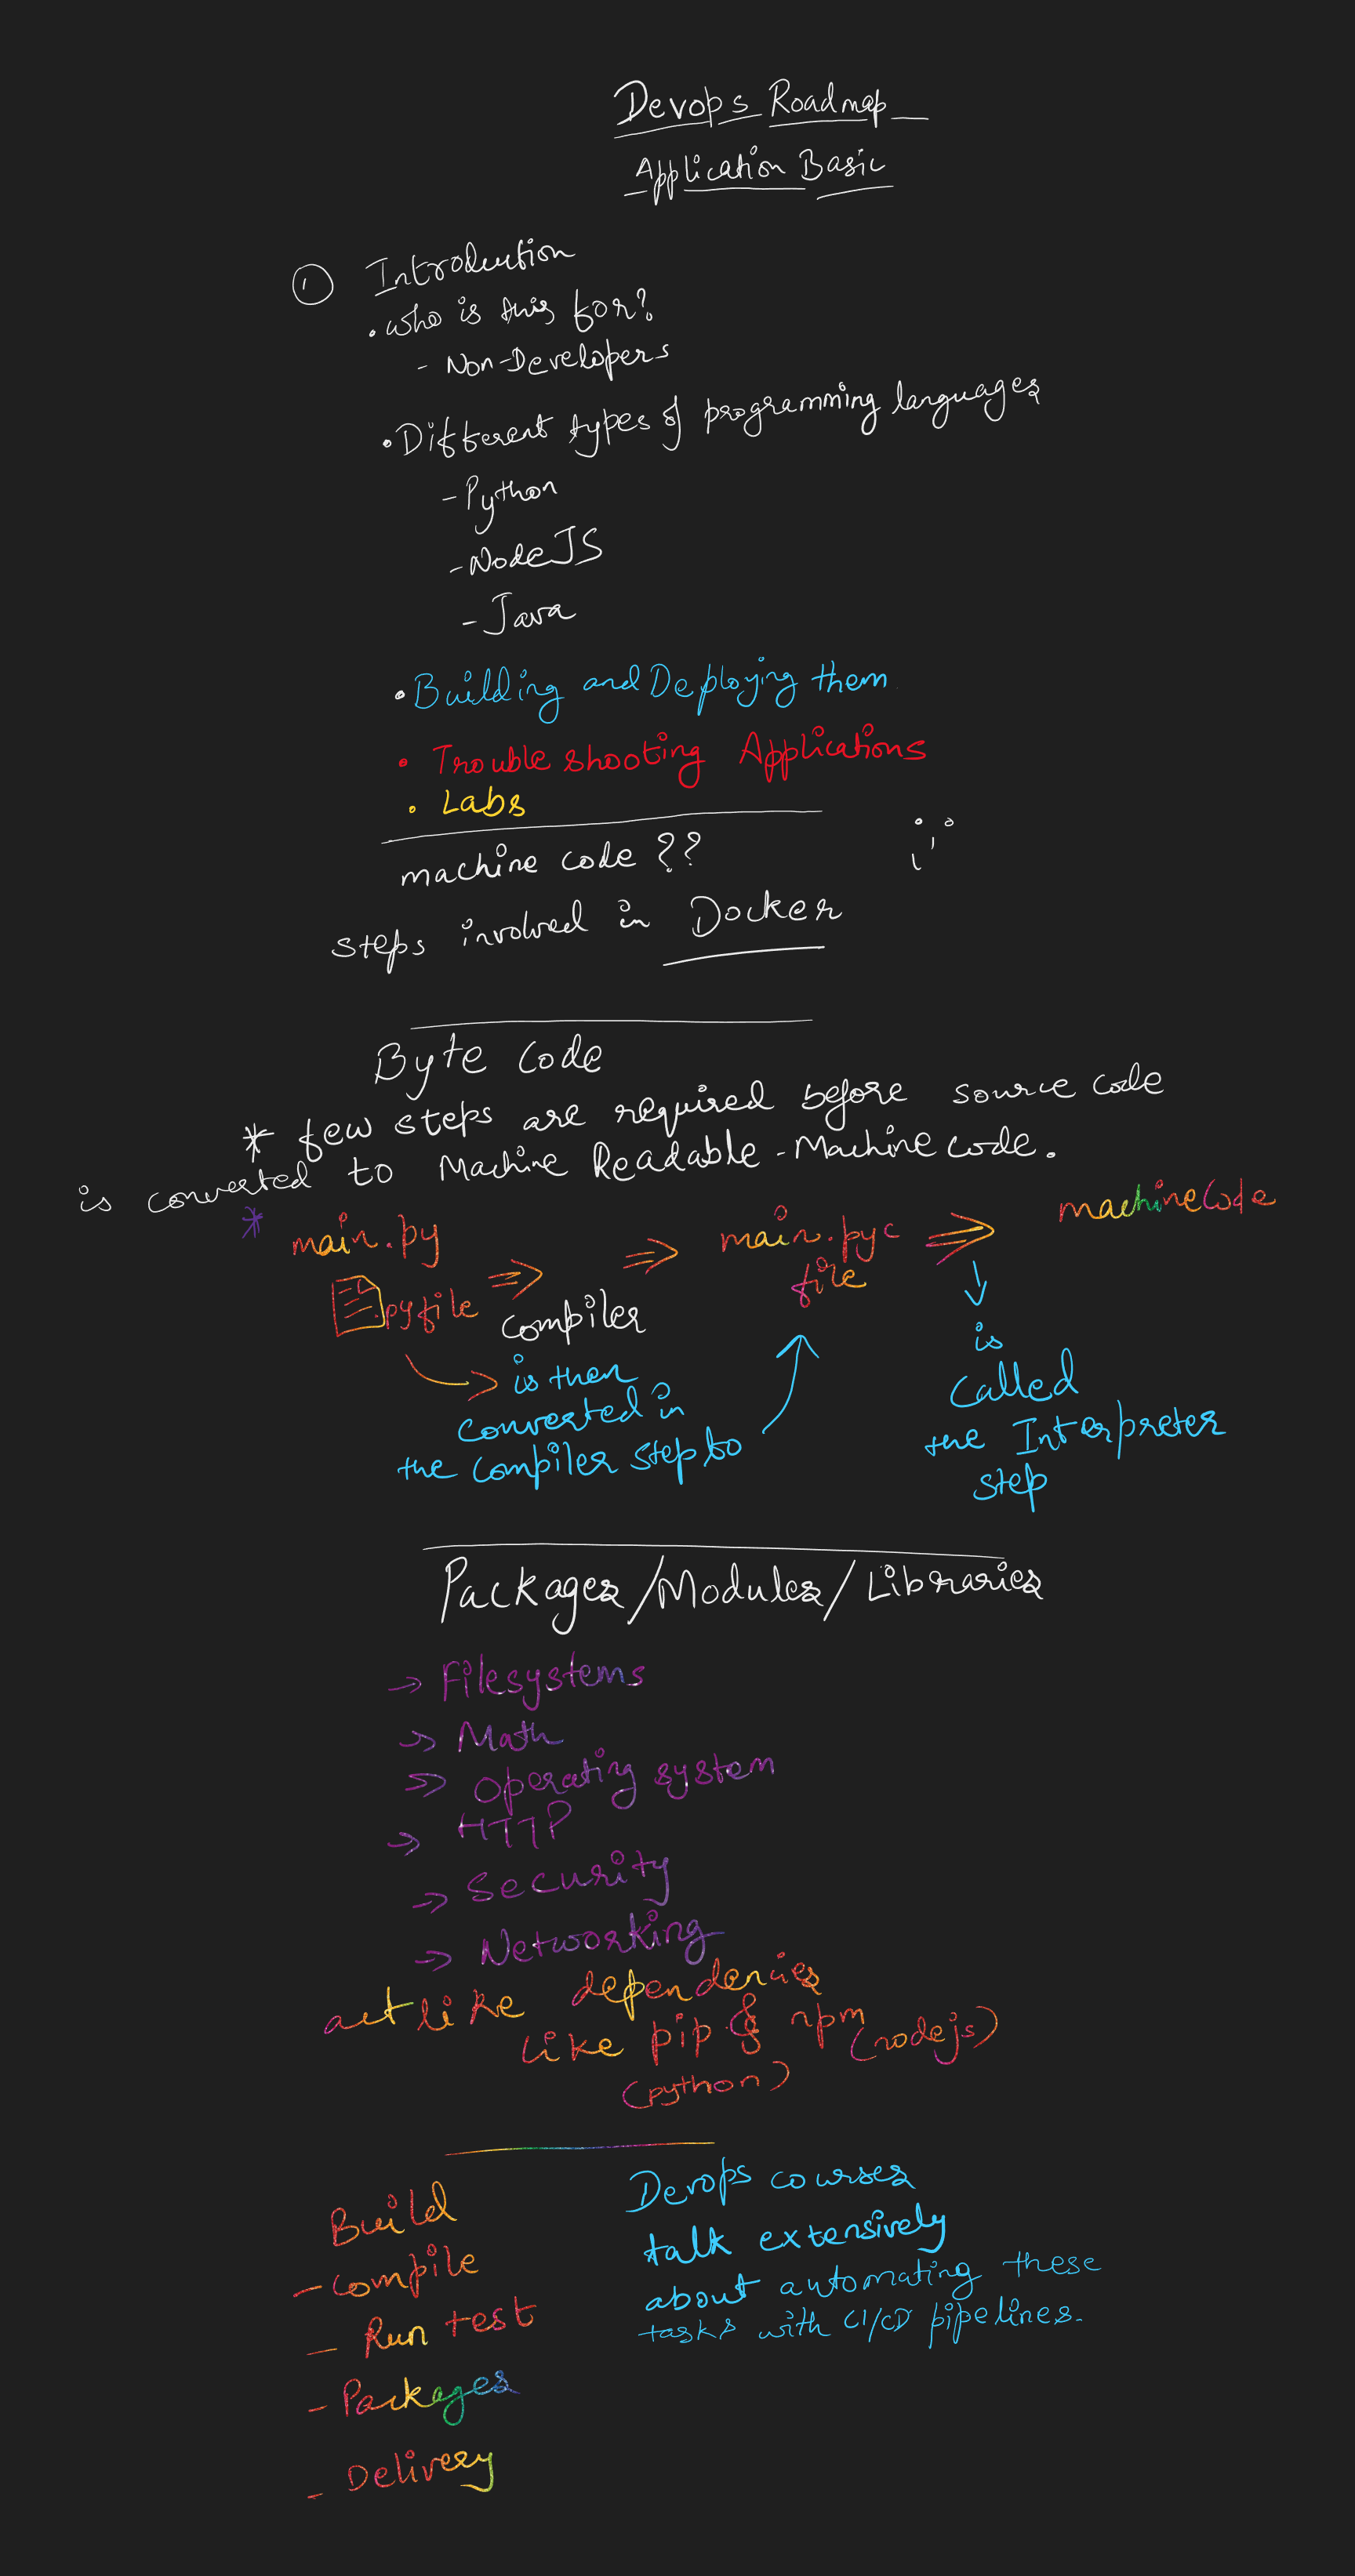 Devops Roadmap
Application Basic
① Introduction
• who is this for?
- Non-Developers
• Different types of programming languages
- Python
- NodeJS
- Java
• Building and Deploying them
• Trouble shooting Applications
• Labs
machine code ??
steps involved in Docker
Byte Code
* few steps are required before source code
is converted to Machine Readable - Machine code.
* main.py ⇒ ⇒ main.pyc file ⇒ machine Code
.pyfile
Compiler
→ is then
converted in
the compiler step to
↓
is
called
the Interpreter
step
Packages/Modules/Libraries
→ Filesystems
→ Math
→ operating system
→ HTTP
→ Security
→ Networking
act like dependencies
like pip & npm (nodejs)
(python)
Build
- compile
- Run test
- Packages
- Delivery
Devops courses
talk extensively
about automating these
tasks with CI/CD pipelines.